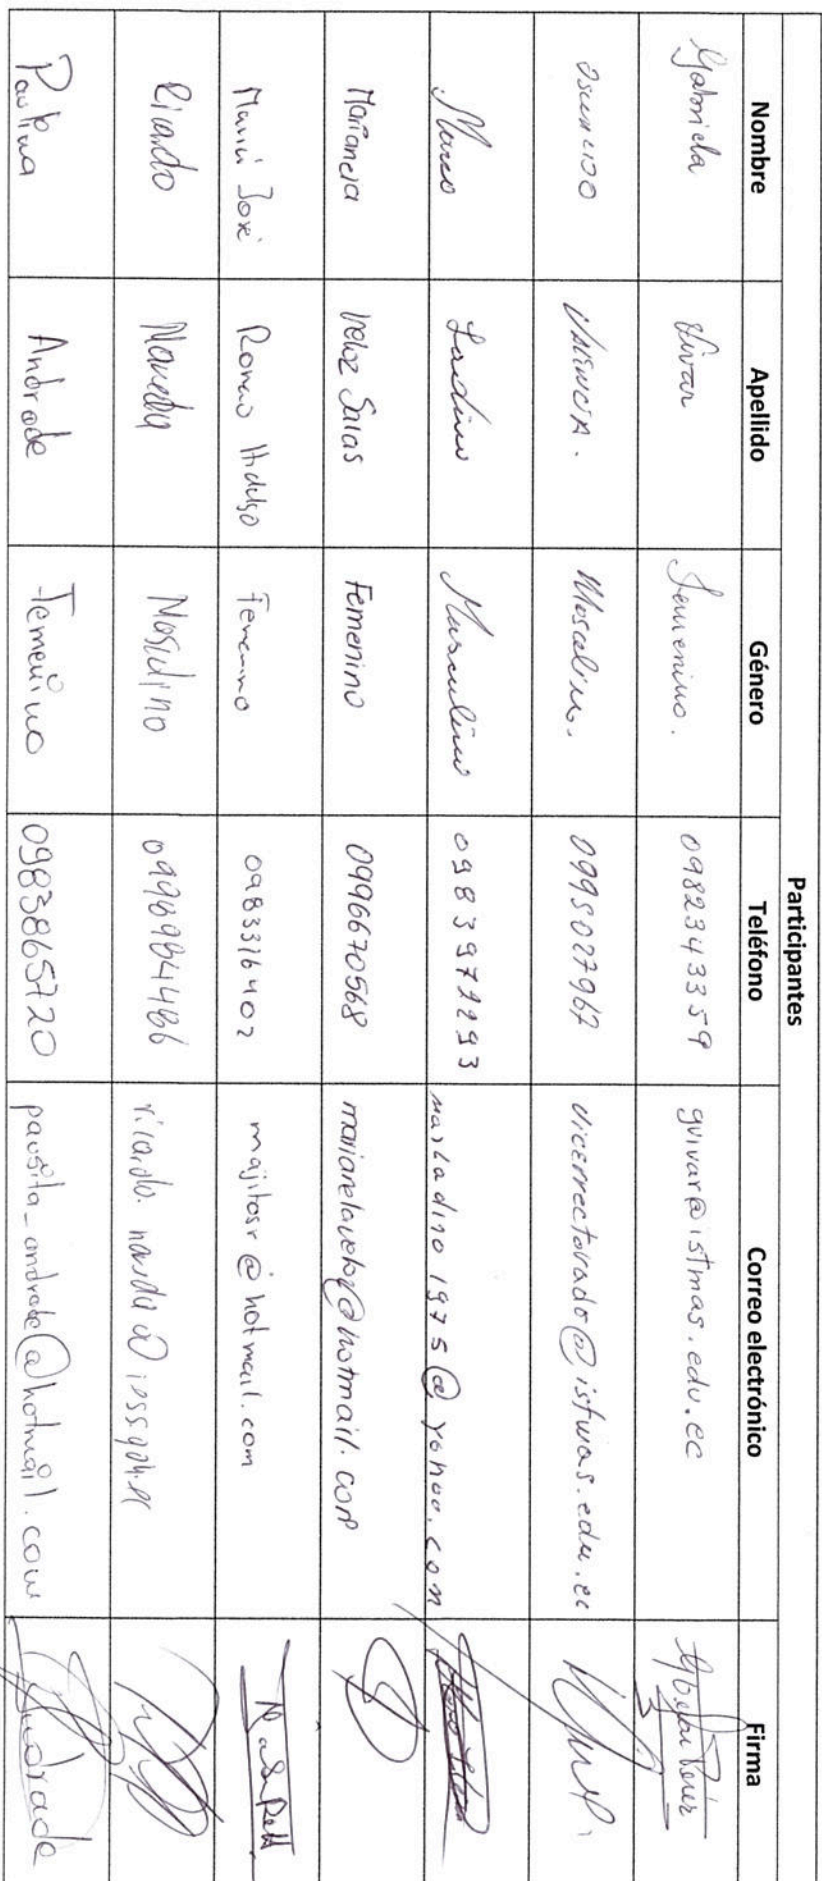 Participantes
Nombre Apellido Género Teléfono Correo electrónico Firma
Gabriela Vivar Femenino. 0982343359 gvivar@istmas.edu.ec
Oswaldo Valencia. Masculino. 0995027967 vicerrectorado@istmas.edu.ec
Marco Ladino Masculino 0983972293 marladino1975@yahoo.com
Marianela Veloz Salas Femenino 0996670568 marianelaveloz@hotmail.com
María José Romo Hidalgo Femenino 0983316402 majitosr@hotmail.com
Ricardo Masculino
Paulina Andrade Femenino 0983865720 pausita_andrade@hotmail.com Andrade